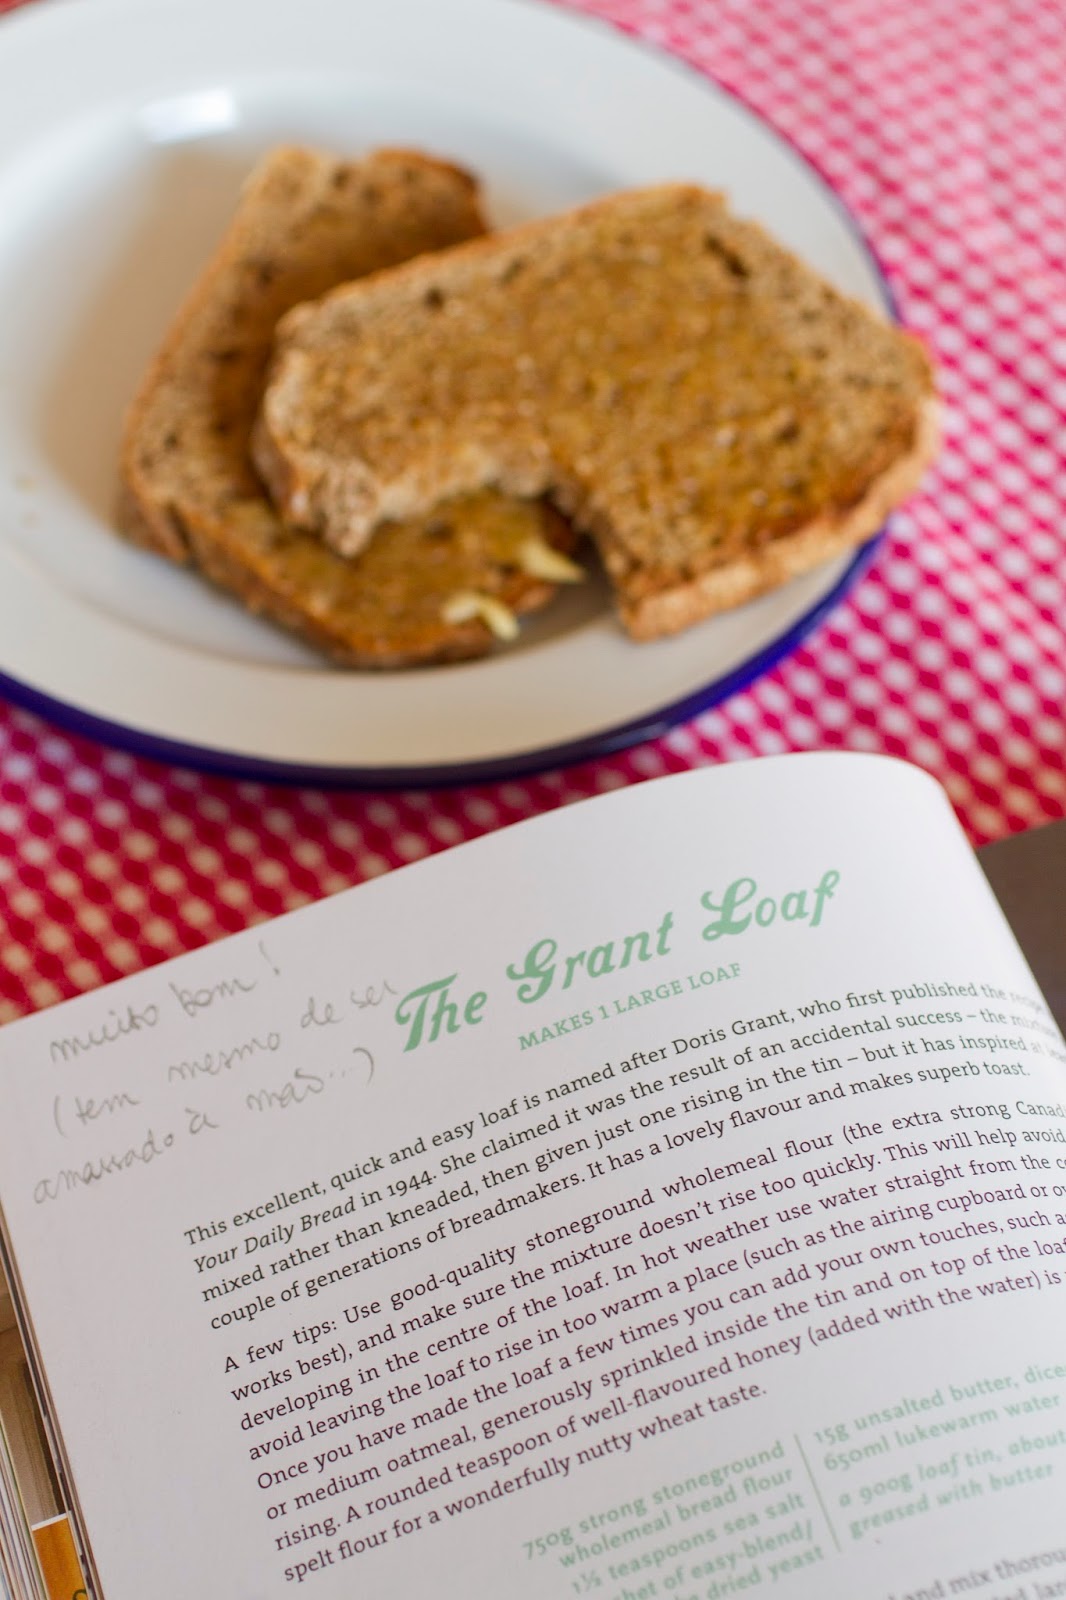 muito bom!
(tem mesmo de ser
amassado à mão...)
The Grant Loaf
MAKES 1 LARGE LOAF
This excellent, quick and easy loaf is named after Doris Grant, who first published the recipe
Your Daily Bread in 1944. She claimed it was the result of an accidental success – the mixture
mixed rather than kneaded, then given just one rising in the tin – but it has inspired at
couple of generations of breadmakers. It has a lovely flavour and makes superb toast.
A few tips: Use good-quality stoneground wholemeal flour (the extra strong Canad
works best), and make sure the mixture doesn't rise too quickly. This will help avoid
developing in the centre of the loaf. In hot weather use water straight from the co
avoid leaving the loaf to rise in too warm a place (such as the airing cupboard or ov
Once you have made the loaf a few times you can add your own touches, such a
or medium oatmeal, generously sprinkled inside the tin and on top of the loaf
rising. A rounded teaspoon of well-flavoured honey (added with the water) is
spelt flour for a wonderfully nutty wheat taste.
750g strong stoneground
wholemeal bread flour
1½ teaspoons sea salt
chet of easy-blend/
dried yeast
15g unsalted butter, dice
650ml lukewarm water
a 900g loaf tin, about
greased with butter
and mix thorou